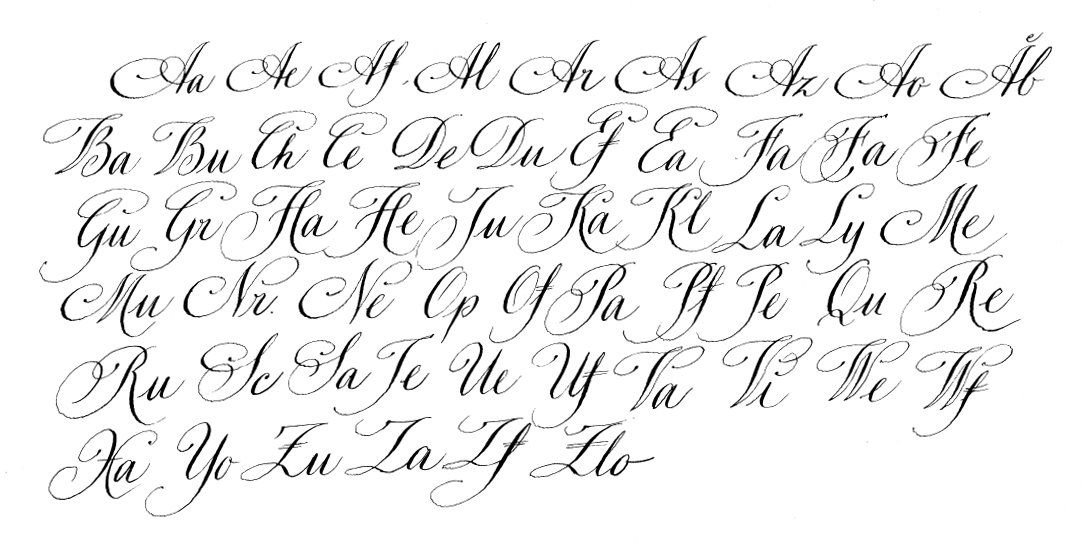 Aa Ae Af Al Ar As Az Ao Ăb
Ba Bu Ch Ce De Du Ef Ea Fa Fa Fe
Gu Gr Ha He Ju Ka Kl La Ly Me
Mu Nr. Ne Op Of Pa Pf Pe Qu Re
Ru Sc Sa Te Ue Uf Va Vi We Wf
Xa Yo Zu Za Zf Zlo